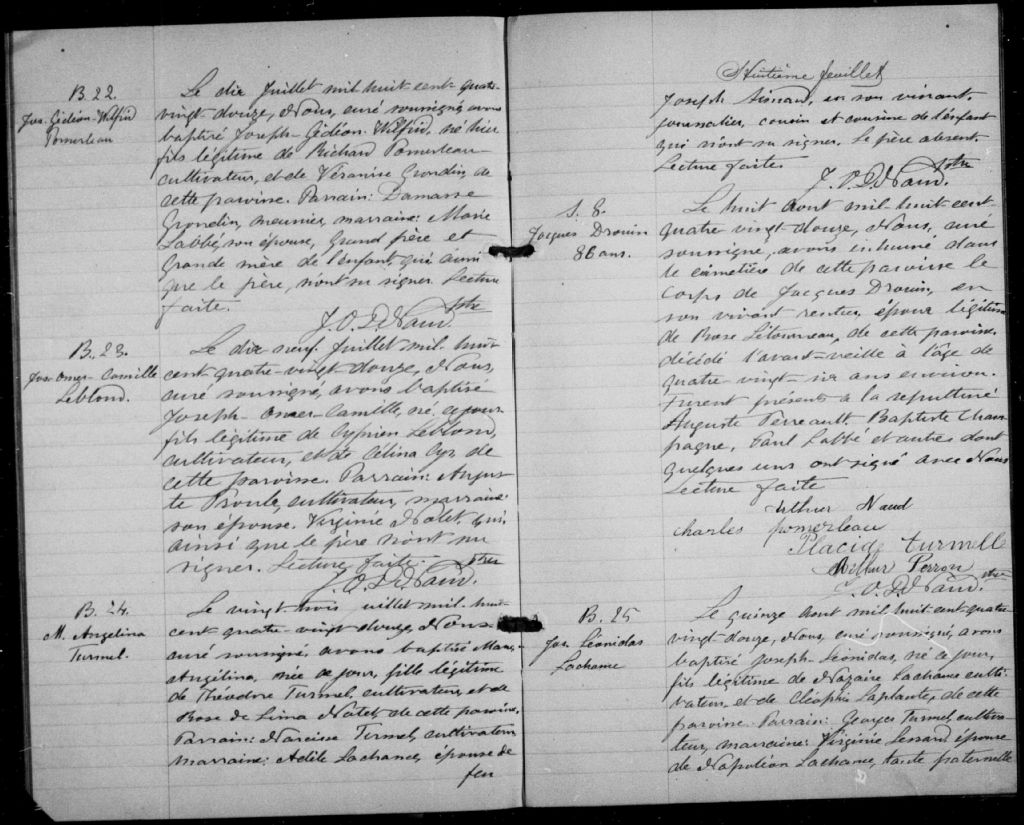 B. 22.
Jos. Gédéon-Wilfrid
Pomerleau
Le dix Juillet mil huit cent quatre
vingt douze, Nous, curé soussigné avons
baptisé Joseph-Gédéon-Wilfrid, né hier
fils légitime de Richard Pomerleau
cultivateur, et de Véranise Grondin, de
cette paroisse. Parrain: Damasse
Grondin, meunier, marraine: Marie
Labbé, son épouse, Grand père et
Grande mère de l'enfant, qui ainsi
que le père, n'ont su signer. Lecture
faite.
J. O. D. Naud. Ptre
B. 23.
Jos-Omer-Camille
Leblond.
Le dix neuf Juillet mil huit
cent-quatre-vingt douze, Nous,
curé soussigné, avons baptisé
Joseph-Omer-Camille, né, ce jour
fils légitime de Cyprien Leblond,
cultivateur, et de Célina Cyr de
cette paroisse. Parrain: Augus-
te Proulx, cultivateur, marraine:
son épouse. Virginie Nolet. qui,
ainsi que le père n'ont su
signer. Lecture faite.
J. O. D. Naud. Ptre
B. 24.
M. Angelina
Turmel.
Le vingt trois uillet mil huit
cent quatre-vingt douze, Nous
curé soussigné, avons baptisé Marie
Angélina, née ce jour, fille légitime
de Théodore Turmel, cultivateur, et de
Rose de Lima Nolet, de cette paroisse.
Parrain: Narcisse Turmel, cultivateur
marraine: Adèle Lachance, épouse de
feu
Huitième feuillet
Joseph Simard, en son vivant,
journalier, cousin et cousine de l'enfant
qui n'ont su signer. Le père absent.
Lecture faite
J. O. D. Naud. Ptre
S. 8.
Jacques Drouin
86 ans.
Le huit Aout mil huit cent-
quatre vingt douze, Nous, curé
soussigné, avons inhumé dans
le cimetière de cette paroisse le
corps de Jacques Drouin, en
son vivant rentier, époux légitime
de Rose Létourneau, de cette paroisse,
décédé l'avant-veille à l'âge de
quatre-vingt-six ans environ.
Furent présents à la sépulture
Auguste Perreault, Baptiste Cham
pagne, Paul Labbé et autres dont
quelques uns ont signé avec Nous
Lecture faite
Arthur Naud
Charles Pomerleau
Placide Turmelle
Arthur Perron
J. O. D. Naud. Ptre
B. 25
Jos. Léonidas
Lachance
Le quinze Aout mil huit cent quatre
vingt-douze, Nous, curé soussigné, avons
baptisé Joseph-Léonidas, né ce jour,
fils légitime de Nazaire Lachance culti-
vateur, et de Cléophie Laplante, de cette
paroisse. Parrain: Georges Turmel, cultiva-
teur, marraine: Virginie Lessard épouse
de Napoléon Lachance, tante paternelle